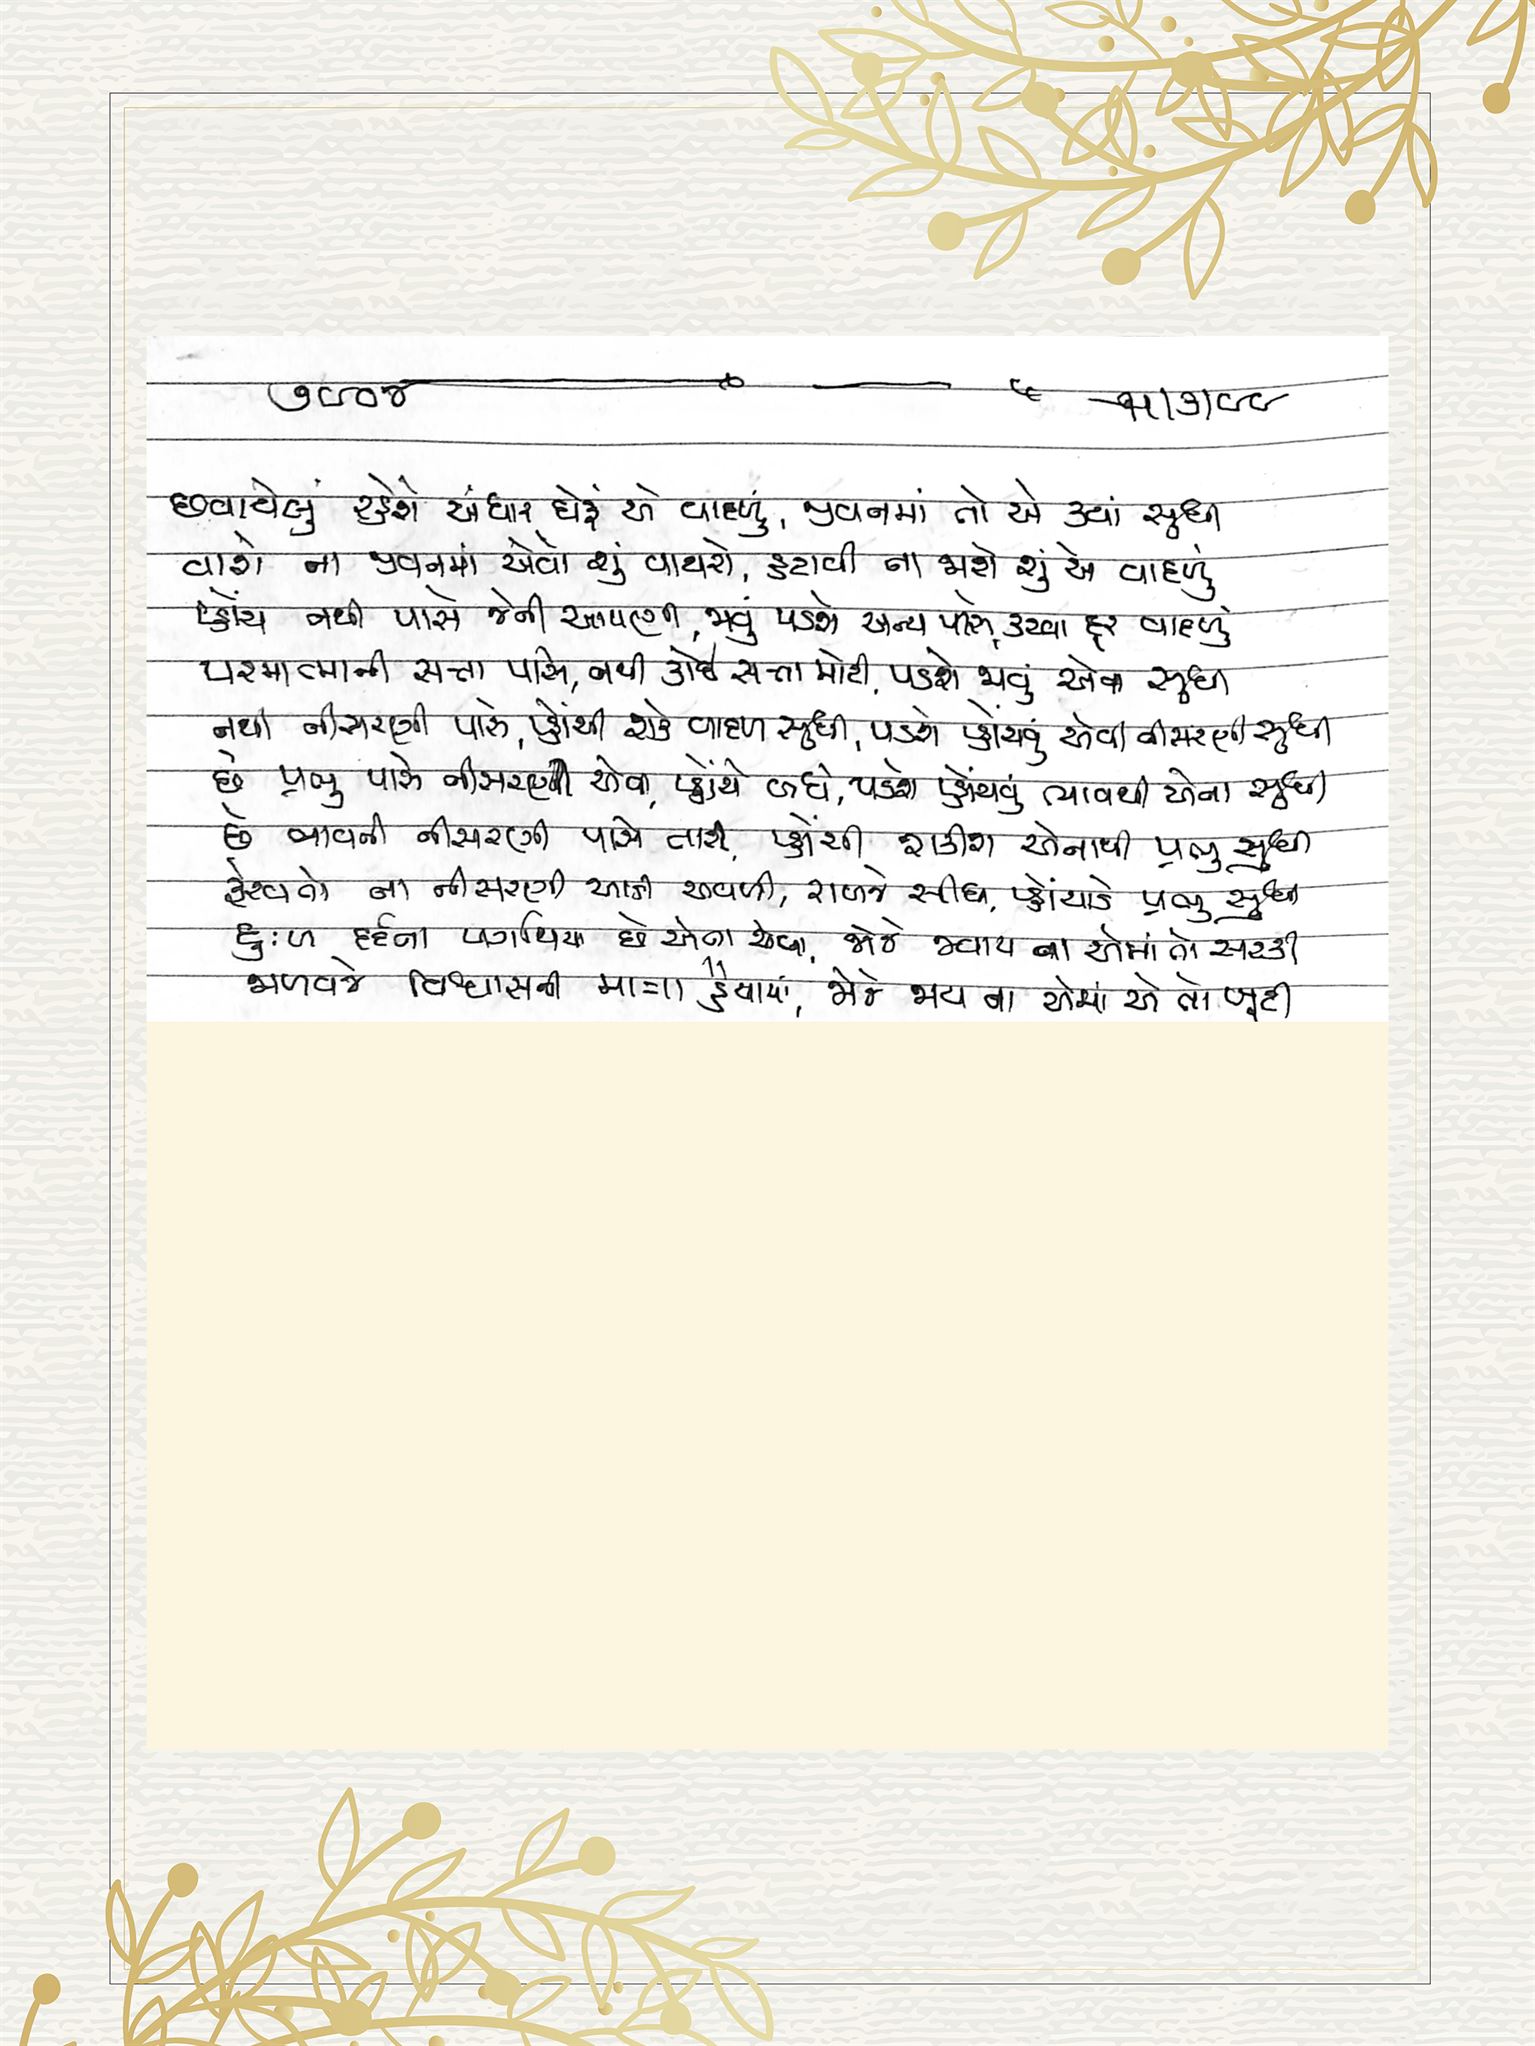 ૭૯૦૪
છવાયેલું રહેશે અંધાર ઘેરું એ વાદળું, જીવનમાં તો એ ક્યાં સુધી
વાશે ના જીવનમાં એવો શું વાયરો, હટાવી ના જાશે શું એ વાદળું
પહોંચ નથી પાસે જેની આપણી, જાવું પડશે અન્ય પાસે, કરવા દૂર વાદળું
પરમાત્માની સત્તા પાસે, નથી કોઈ સત્તા મોટી, પડશે જાવું એના સુધી
નથી નીસરણી પાસે, પહોંચી શકે વાદળ સુધી, પડશે પહોંચવું એવી નીસરણી સુધી
છે પ્રભુ પાસે નીસરણી એવી, પહોંચે બધે, પડશે પહોંચવું ભાવથી એના સુધી
છે ભાવની નીસરણી પાસે તારી, પહોંચી શકીશ એનાથી પ્રભુ સુધી
ફેરવતો ના નીસરણી આડી અવળી, રાખજે સીધી, પહોંચાડે પ્રભુ સુધી
દુઃખ દર્દના પગથિયા છે એના એવા, જોજે જવાય ના એમાં તો સરકી
જાળવજે વિશ્વાસની માત્રા હૈયામાં, જોજે જાય ના એમાં એ તો ખૂટી